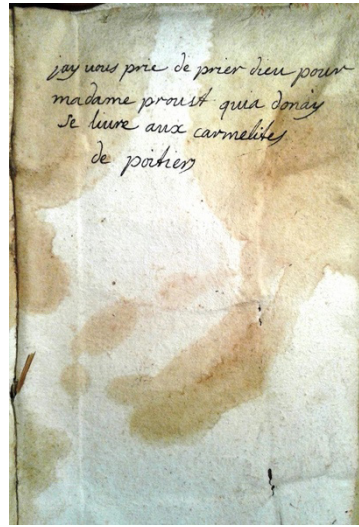 jay vous prie de prier dieu pour
madame proust quia donay
se liure aux carmelites
de poitiers